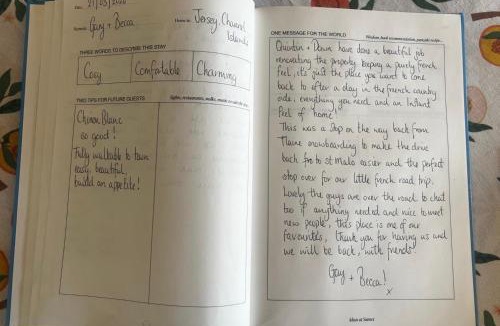 21/03/2026
Name(s) Gary + Becca
Home in Jersey, Channel
Islands
THREE WORDS TO DESCRIBE THIS STAY
Cosy
Comfortable
Charming
TIPS FOR FUTURE GUESTS
Cheval Blanc
so good!
Fully walkable to town
easy, beautiful,
build an appetite!
ONE MESSAGE FOR THE WORLD
Quentin + Dawn have done a beautiful job
renovating the property keeping a purely french
feel, its just the place you want to come
back to after a day in the french country
side, everything you need and an instant
feel of home
This was a stop on the way back from
snowboarding to make the drive
back to St Malo easier and the perfect
stop over for our little french road trip.
Lovely the guys are over the road to chat
too if anything needed and nice to meet
new people, this place is one of our
favourites, thank you for having us and
we will be back, with friends.
Gary + Becca!
x